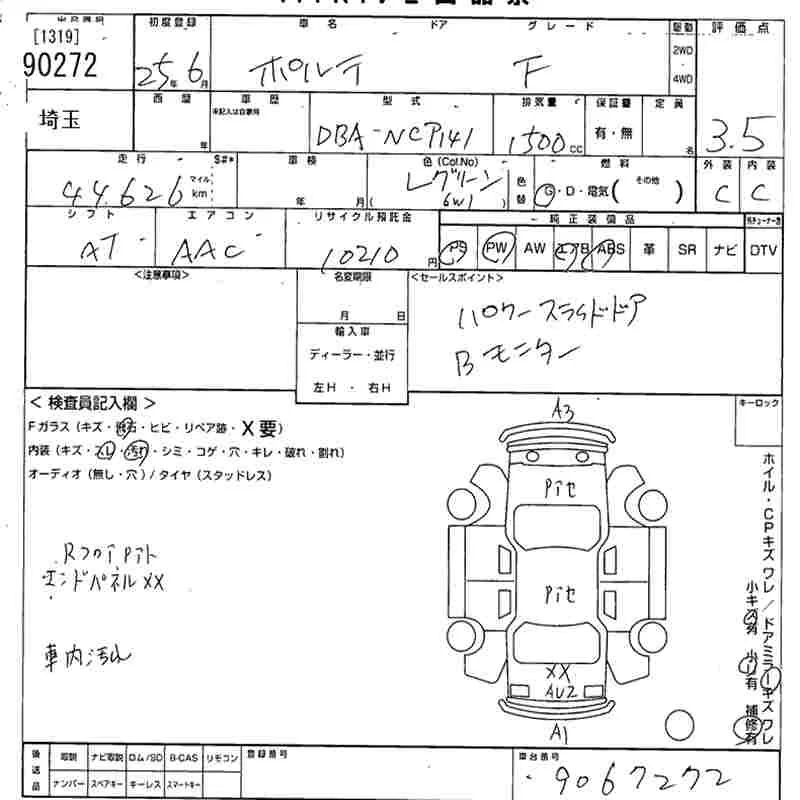 [1319]
90272
初度登録 車名 ドア グレード 駆動 評価点
25年 6月 ポルテ F 2WD 4WD 3.5
埼玉
西暦 車歴 型式 排気量 保証書 定員
年 未記入は自家用 DBA-NCP141 1500cc 有・無 名
走行 $#* 車検 色(Col.No) 燃料 外装 内装
44,626 マイル km 年 月 ( Lグリーン 6W1 ) 色替 G・D・電気( その他 ) C C
シフト エアコン リサイクル預託金 純正装備品
AT AAC 10210円 PS PW AW エアB ABS 革 SR ナビ DTV
<注意事項> 名変期限 <セールスポイント>
月 日
パワースライドドア
Bモニター
輸入車
ディーラー・並行
左H・右H
<検査員記入欄> キーロック
Fガラス(キズ・飛石・ヒビ・リペア跡・X要)
内装(キズ・スレ・汚れ・シミ・コゲ・穴・キレ・破れ・割れ)
オーディオ(無し・穴)/タイヤ(スタッドレス)
A3
Pイセ
Rフロア Pイト
エンドパネルXX
Pイセ
車内汚れ
XX
AU2
A1
ホイル・CPキズワレ/ドアミラーキズワレ
小キズ有 小凹有 補修有
後送品 取説 ナビ取説 ロム/SD B-CAS リモコン 登録番号 車台番号
ナンバー スペアキー キーレス スマートキー
9067272